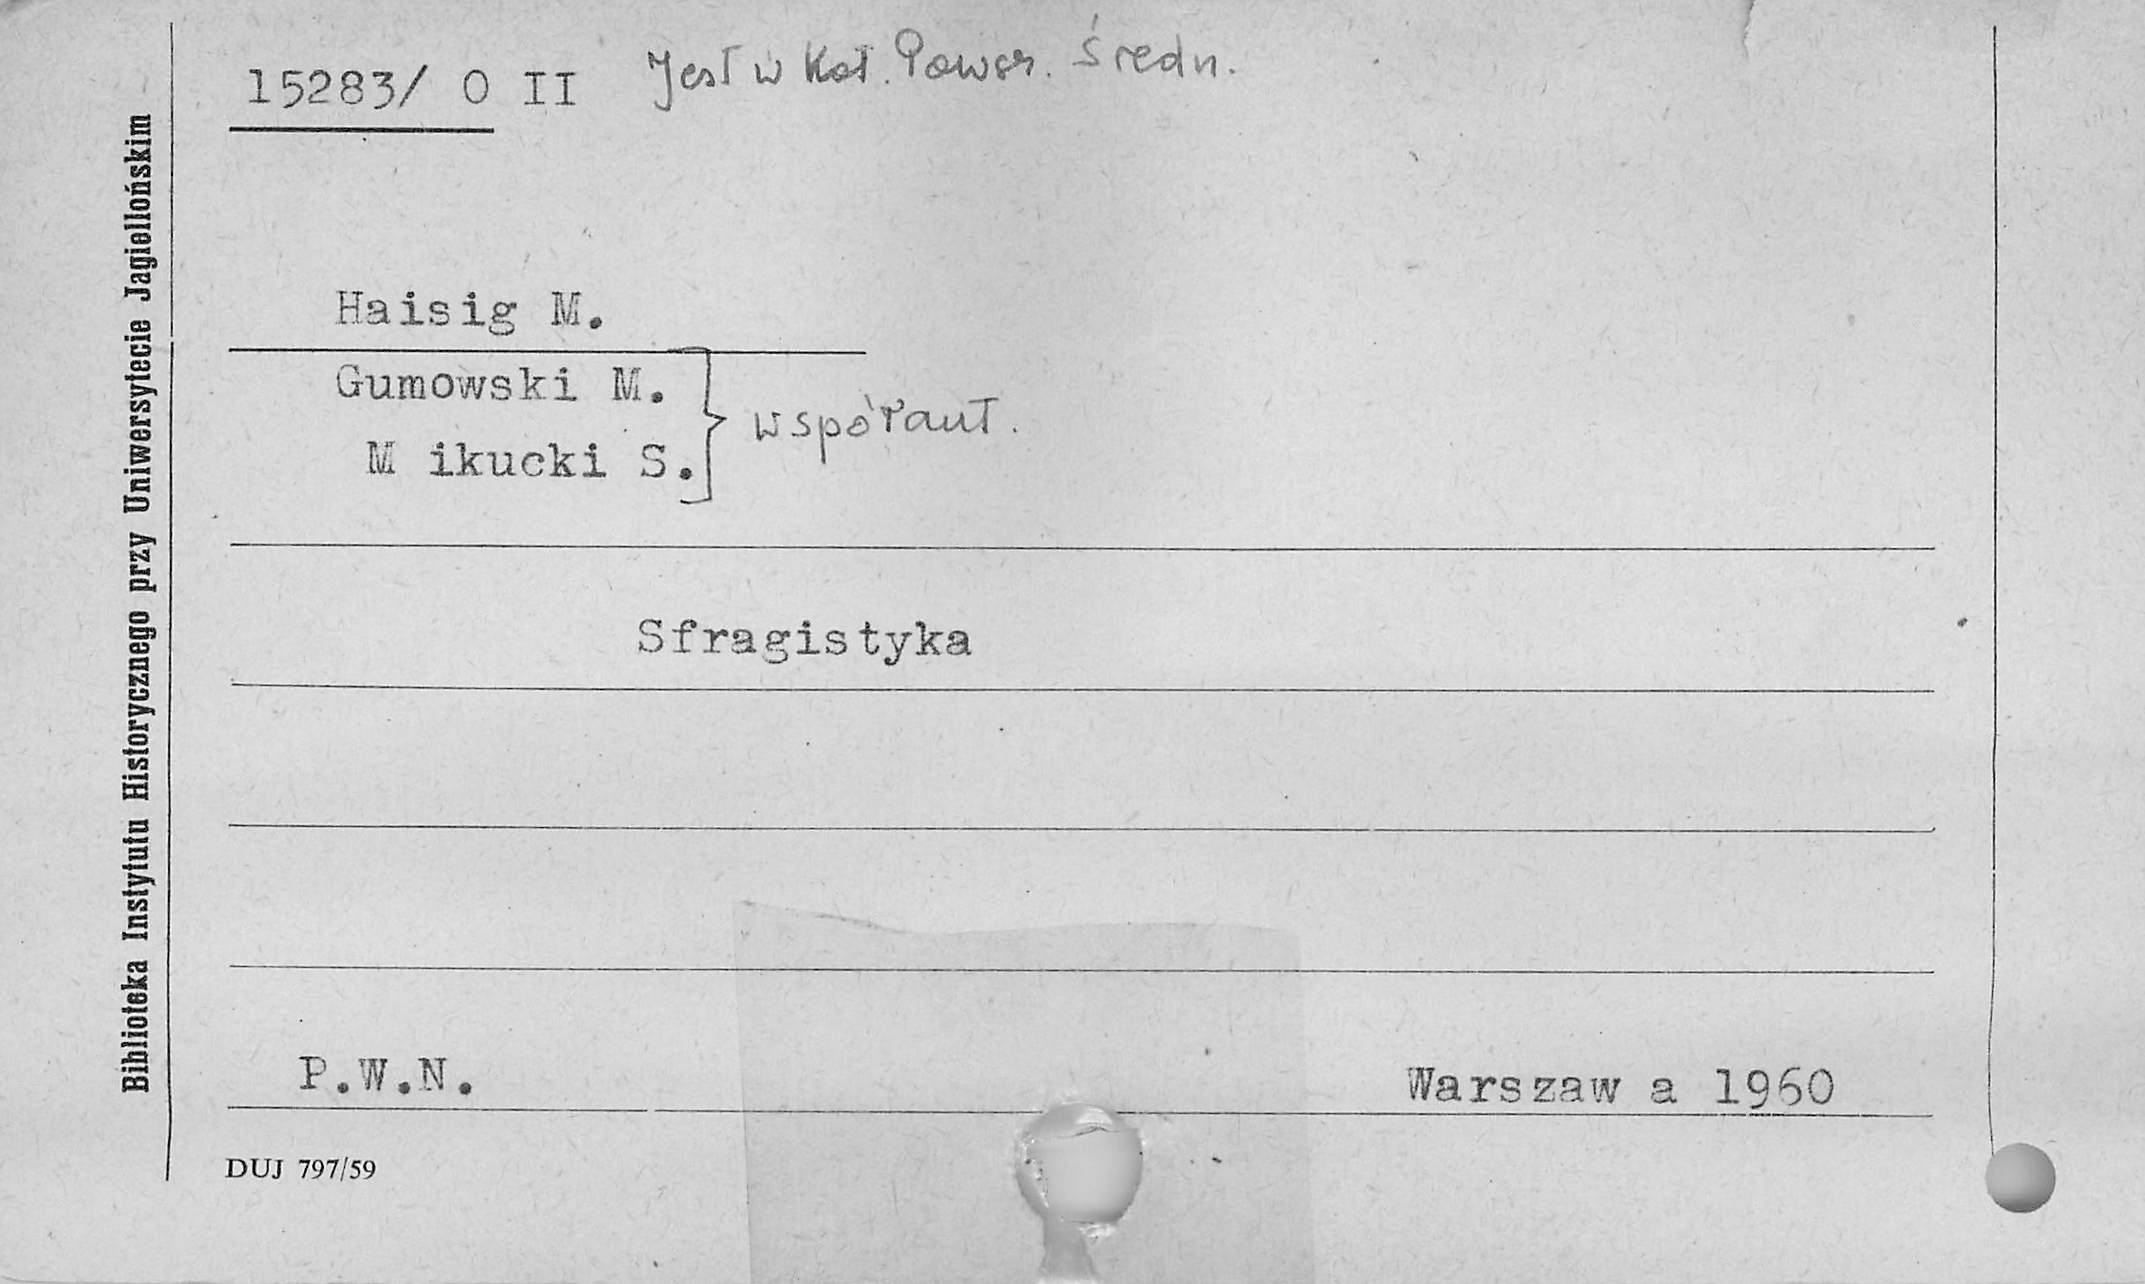 15283/ O II Jest w Kat. Powsz. Średn.
Haisig M.
Gumowski M.
M ikucki S. } współaut.
Sfragistyka
P.W.N. Warszaw a 1960
DUJ 797/59
Biblioteka Instytutu Historycznego przy Uniwersytecie Jagiellońskim